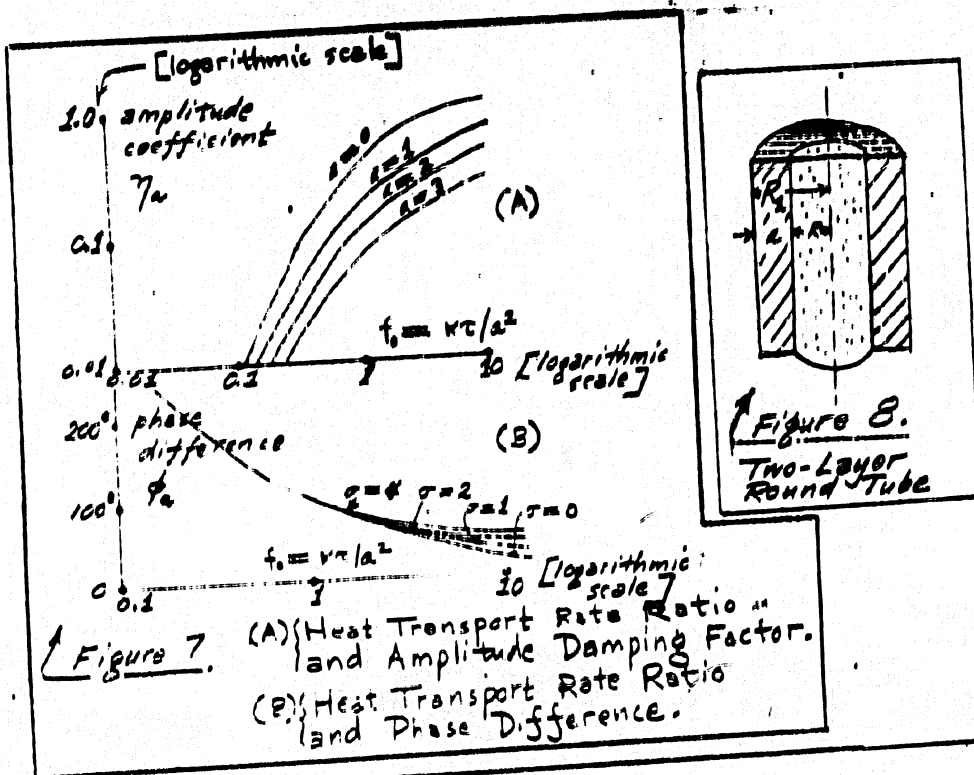 [logarithmic scale]
1.0 amplitude
coefficient
ηa
0.1
0.01
(A)
f₀ = κτ/a²
0.01
0.1
1
10 [logarithmic
scale]
200° phase
difference
ϕa
100°
0
(B)
σ=2
σ=1
σ=0
f₀ = κτ/a²
0.1
1
10 [logarithmic
scale]
Figure 7.
(A) {Heat Transport Rate Ratio
and Amplitude Damping Factor.
(B) {Heat Transport Rate Ratio
and Phase Difference.
a
Figure 8.
Two-Layer
Round Tube